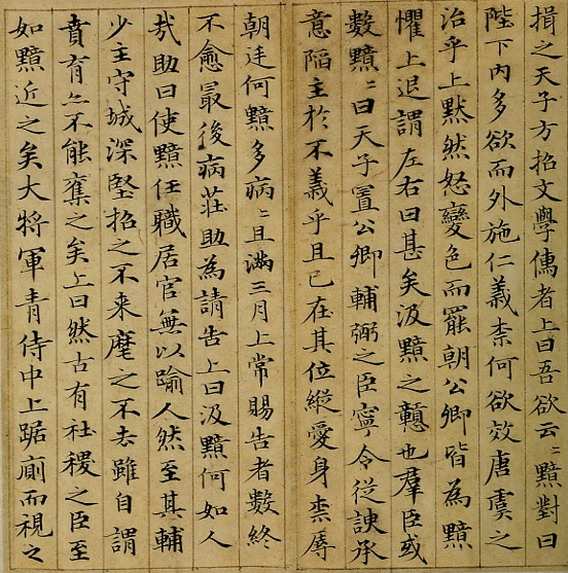 揖之天子方招文學儒者上曰吾欲云〻黯對曰
陛下內多欲而外施仁義柰何欲效唐虞之
治乎上默然怒變色而罷朝公卿皆為黯
懼上退謂左右曰甚矣汲黯之戇也羣臣或
數黯〻曰天子置公卿輔弼之臣寧令從諛承
意陷主於不義乎且已在其位縱愛身柰辱
朝廷何黯多病〻且滿三月上常賜告者數終
不愈最後病莊助為請告上曰汲黯何如人
㢤助曰使黯任職居官無以踰人然至其輔
少主守城深堅招之不来麾之不去雖自謂
賁育亦不能奪之矣上曰然古有社稷之臣至
如黯近之矣大將軍青侍中上踞廁而視之